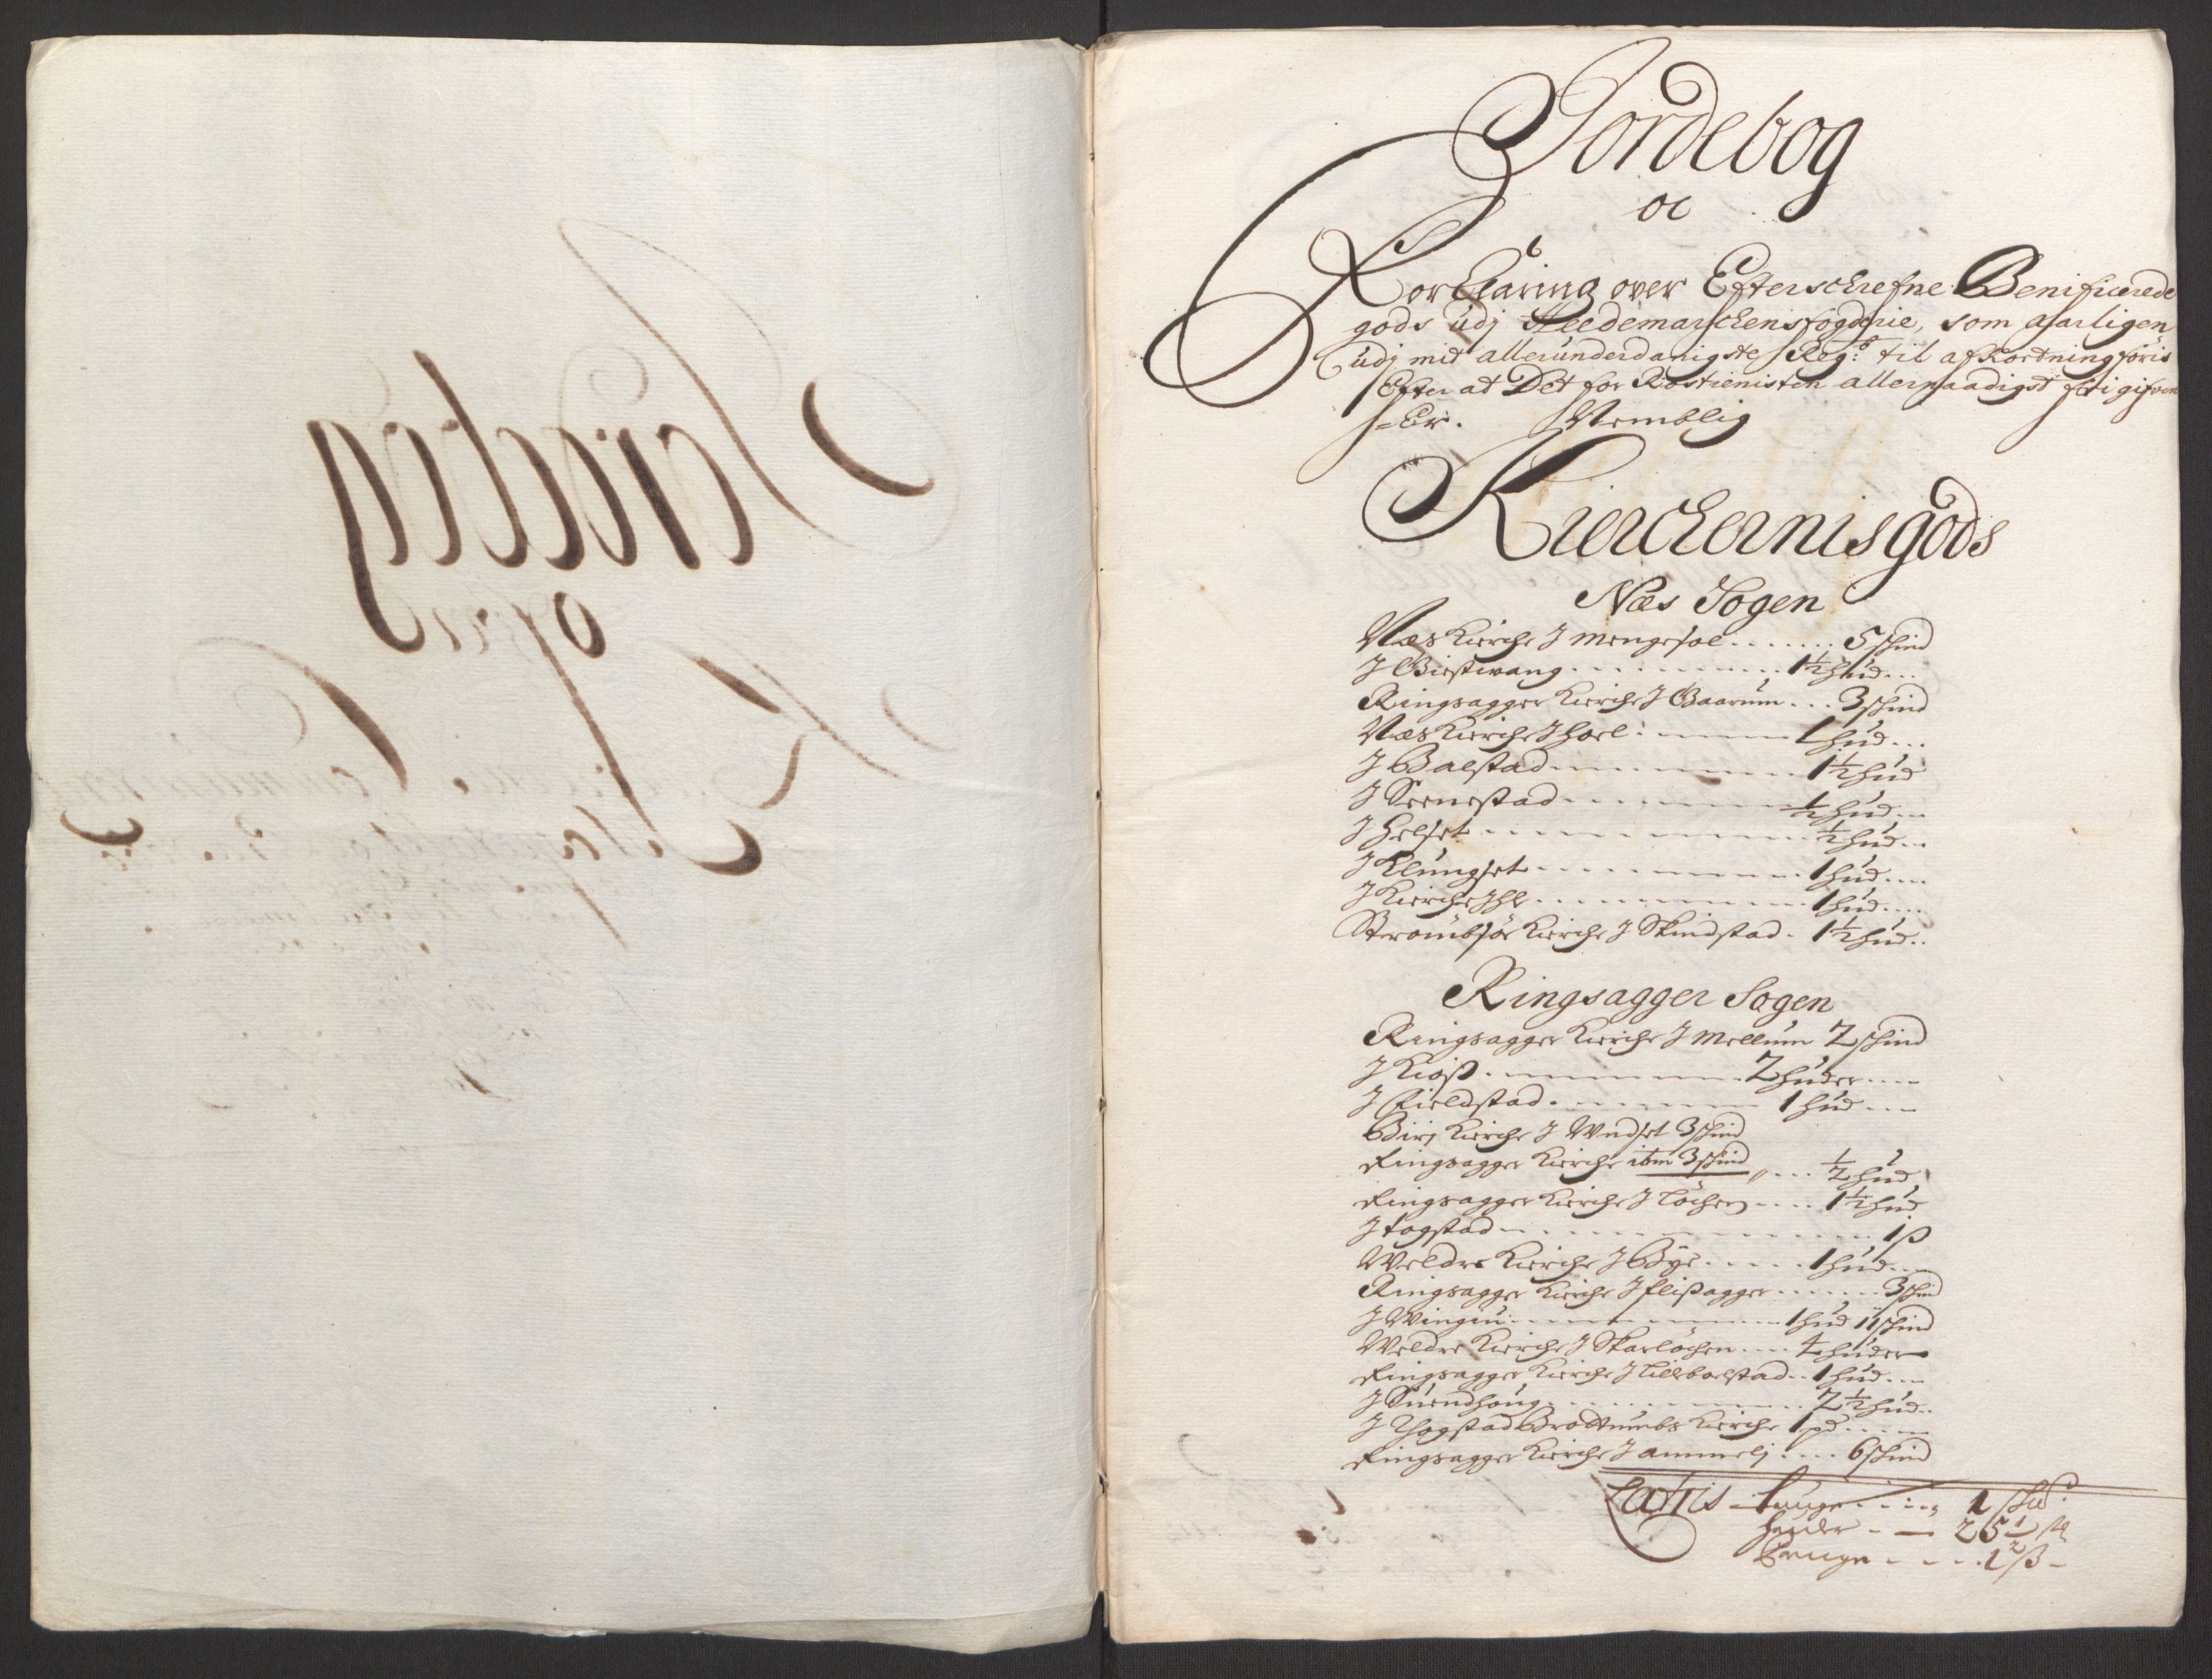 Jordebog
oc
Forklaring over Efterschrefne Benificerede
gods udj Heedemarchens fogderie, som aarligen
udj mit allerunderdanigste Reg: til afkortning føris
Efter at Det for Rostienisten allernaadigst fri gifven
Er. Nemblig
Kierchernis gods
Næs Sogen
Næs Kierche J Mengesol . . . . . . 5 schind
J Biestwang . . . . . . . . . . 1½ hud . . .
Ringsagger Kierche J Baarum . . . 3 schind
Næs Kierche J hoel . — — — 1 hud . . .
J Balstad . . . . . . . . . 1½ hud
J Seenestad . . . . . . . . ½ hud . . .
J helset . . . . . . . . . . ½ hud . . .
J Klungset . . . . . . . . . 1 hud . . . .
J Kierche Jhl . . . . . . . . 1 hud . . . .
Strømbsøe Kierche J Skindstad . 1½ hud . .
Ringsagger Sogen
Ringsagger Kierche J Mellum 2 schind
J Kiøs . . . . . . . . . 2 huder . . . .
J Fieldstad . . . . . . . 1 hud . . .
Birj Kierche J Wndset 3 schind
Ringsagger Kierche ibm 3 schind . . . ½ hud
Ringsagger Kierche J Løchen . . . . 1½ hud
J fogstad . . . . . . . . . . . . 1 ß
Weldre Kierche J Bye . . . . . 1 hud . . .
Ringsagger Kierche J flisagger . . . . . . 3 schind
J Wingiu . . . . . . . . . 1 hud 11 schind
Weldre Kierche J Skarløchen . . . . 4 huder
Ringsagger Kierche J Lillebolstad . . 1 hud . . .
J Suendhoug . . . . . . . . . . 2½ hud . .
J Thogstad Brøttumbs Kierche 1 pd . . . .
Ringsagger Kierche J ammelj . . . . 6 schind
Latris Tunge . . . . 1
huder . — 25½
Penge . . . . 1 ß –